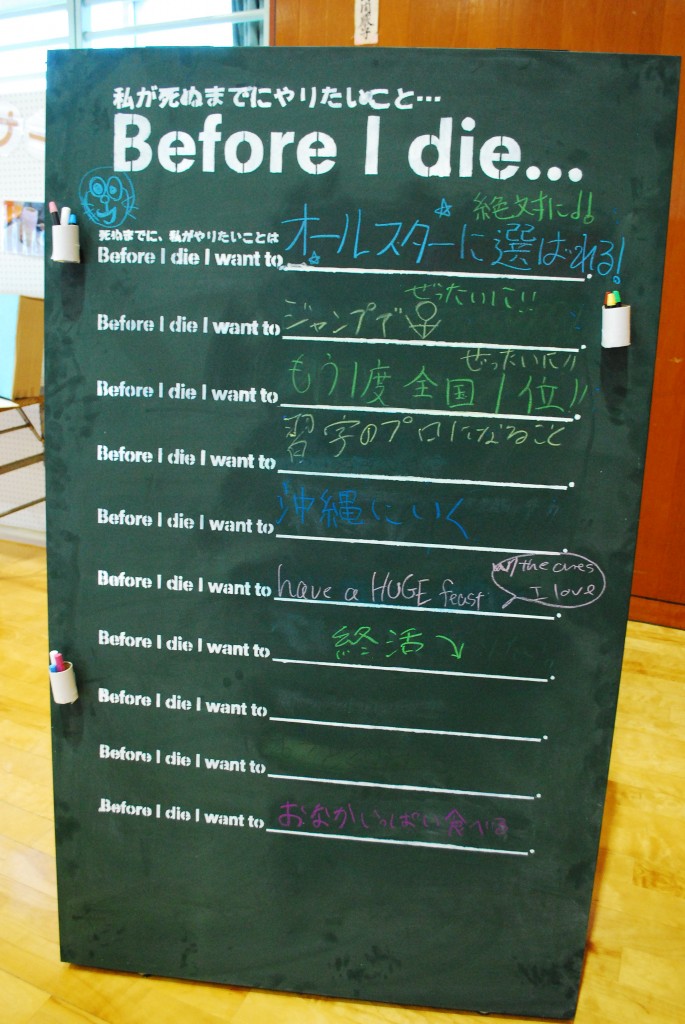 私が死ぬまでにやりたいこと…
Before I die...
絶対に!!
死ぬまでに、私がやりたいことは
Before I die I want to オールスターに選ばれる!
ぜったいに!!
Before I die I want to ジャンプで
ぜったいに!!
Before I die I want to もう1度全国1位!!
Before I die I want to 習字のプロになること
Before I die I want to 沖縄にいく
Before I die I want to have a HUGE feast w/ the ones I love
Before I die I want to 終活
Before I die I want to
Before I die I want to
Before I die I want to おなかいっぱい食べる